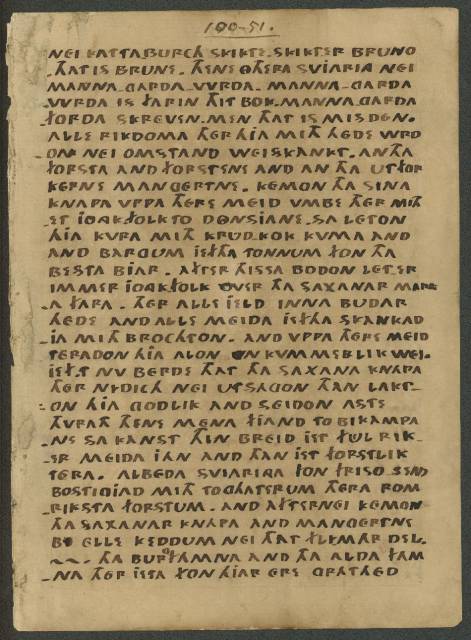 190-51.
NEI KATTABURCH SKIKTE. SKIKTER BRUNO
.THAT IS BRUNE. THENE OTHERA SVIARIA NEI
MANNA-GARDA-VVRDA. MANNA-GARDA
VVRDA IS FARIN THIT BOK. MANNA.GARDA
FORDA SKREVEN. MEN THAT IS MISDEN.
ALLE RIKDOMA THER HIA MITH HEDE WRD
-ON NEI OMSTAND WEISKANKT. AN THA
FORSTA AND FORSTENE AND AN THA UTFOR
KERNE MANGERTNE. KEMON THA SINA
KNAPA VPPA THERE MEID VMBE THER MITH
ET IONGKFOLK TO DONSIANE. SA LETON
HIA KVRA MITH KRUD-KOK KVMA AND
AND BARGUM IEFTHA TONNUM FON THA
BESTA BIAR. AFTER THISSA BODON LET.ER
IMMER IONGKFOLK OVER THA SAXANAR MARK
-A FARA. THER ALLE IELD INNA BUDAR
HEDE AND ALLE MEIDA IEFTHA SKANKAD
IA MITH BROCHTON. AND VPPA THERE MEID
TERADON HIA ALON ON KVMMERLIK WEI.
IEF.T NV BERDE THAT THA SAXANA KNAPA
THER NYDICH NEI UTSAGON THAN LAKT-
-ON HIA GODLIK AND SEIDON ASTE
THVRATH THENE MENA FIAND TO BIKAMPA
-NE SA KANST THIN BREID IET FUL RIK-
-ER MEIDA IAN AND THAN IET FORSTLIK
TERA. ALBEDA SVIARINGA FON FRISO SEND
BOSTIGIAD MITH TOGHATERUM THERA ROM
-RIKSTA FORSTUM. AND AFTERNEI KEMON
THA SAXANAR KNAPA AND MANGERTNE
BY ELLE KEDDUM NEI THAT FLYMAR DEL.
THA BURCHFAMNA AND THA ALDA FAM
-NA THER IETA FON HIAR ERE GRATHED